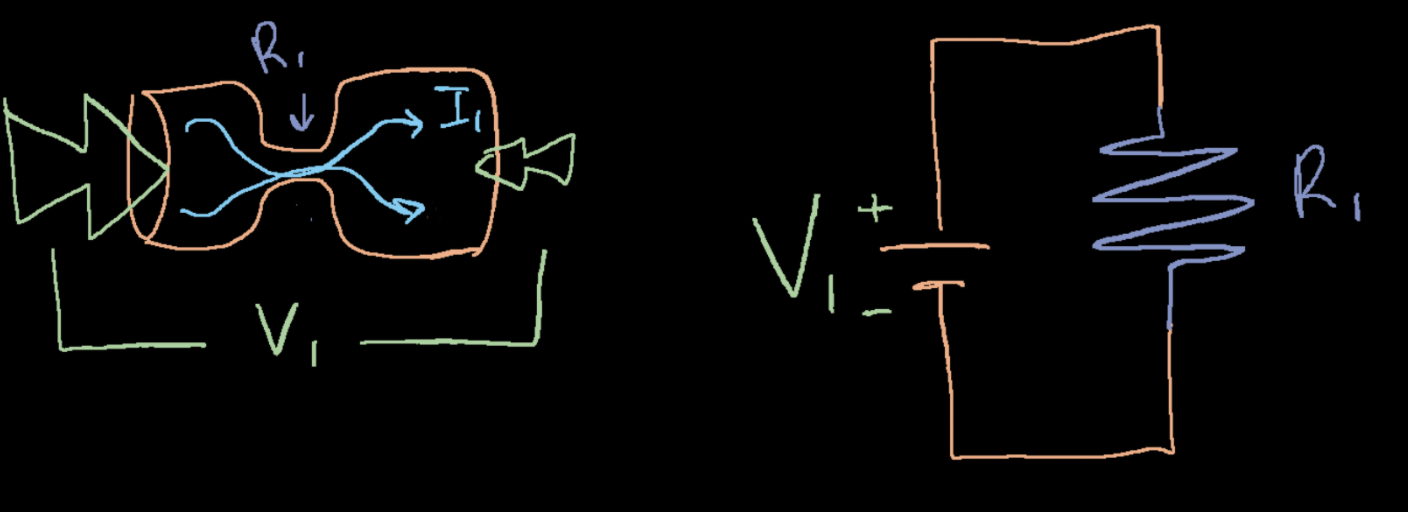 R₁
I₁
V₁
V₁
+
-
R₁